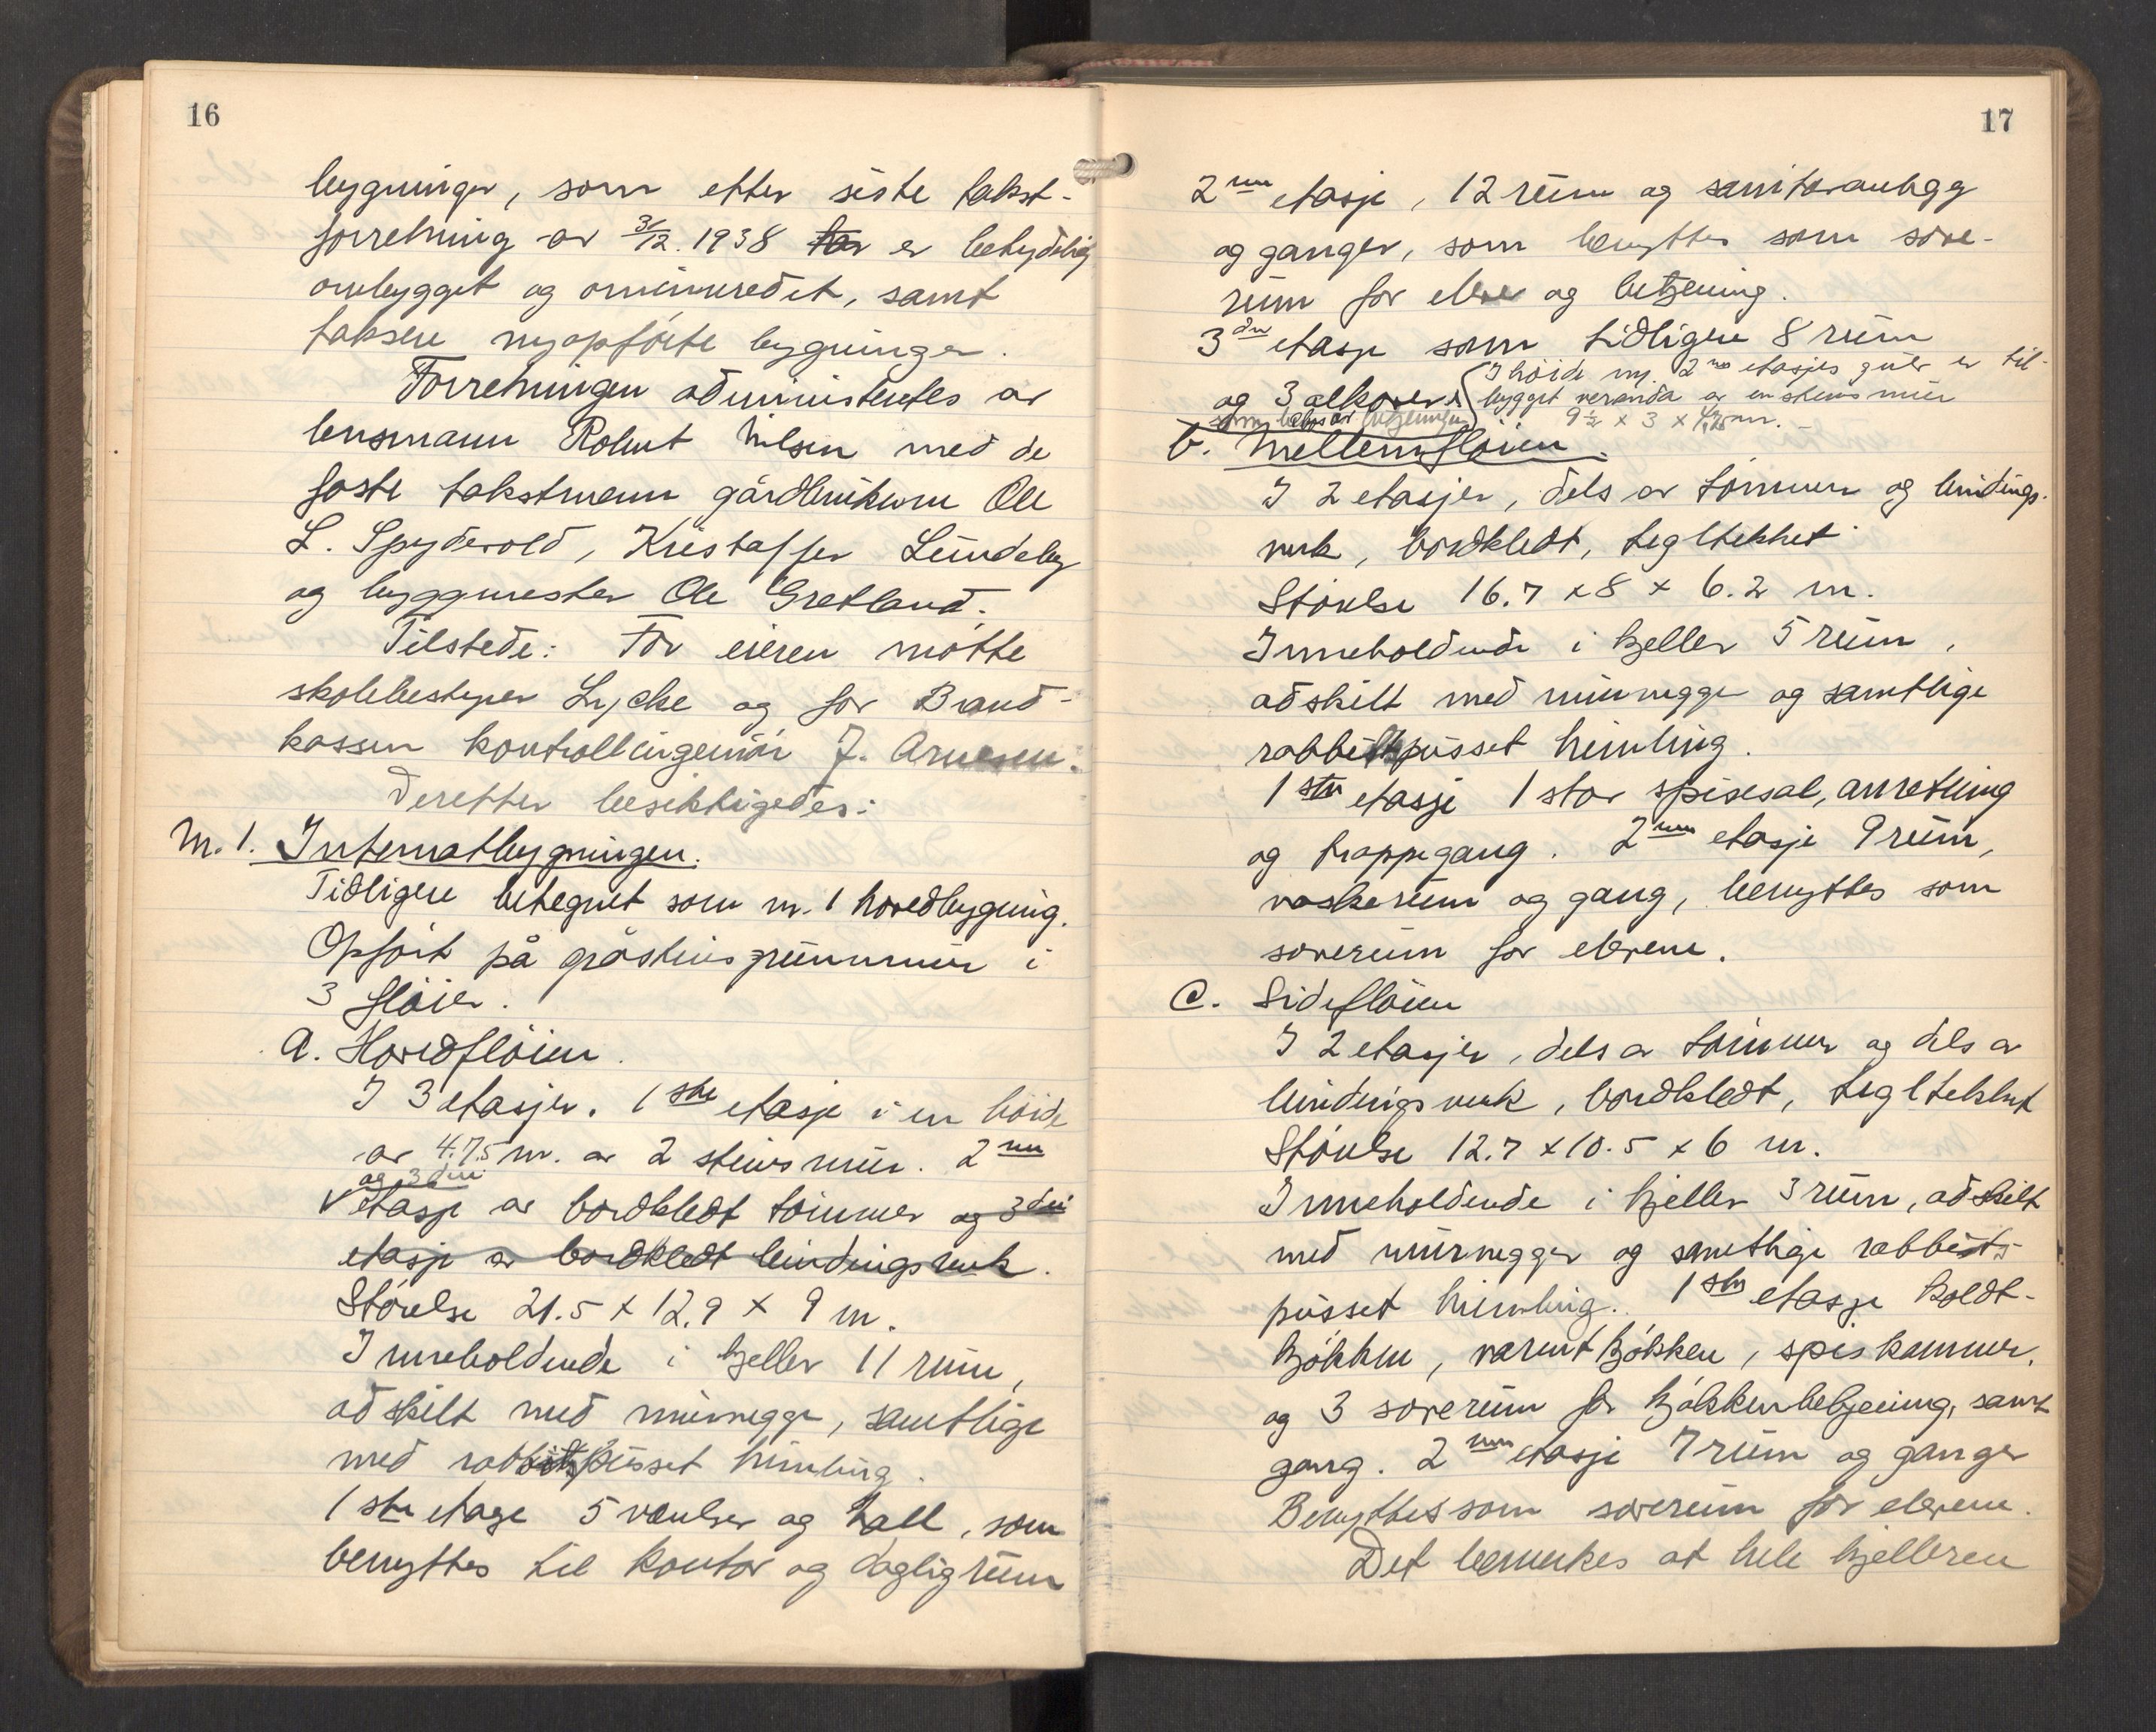 16
bygninger, som etter siste takst-
forretning av 31/12. 1938 er betydelig
ombygget og ominnredet, samt
taksere nyopførte bygninger.
Forretningen administrertes av
lensmann Robert Nilsen med de
faste takstmenn gårdbrukerne Ole
L. Spydevold, Kristoffer Lundeby
og byggmester Ole Gretland.
Tilstede: For eieren møtte
skolebestyrer Lycke og for Brand-
kassen kontrollingeniør J. Arnesen.
Deretter besiktigedes:
M. 1. Internatbygningen.
Tidligere betegnet som m. 1 hovedbygning.
Opført på gråsteins grunnmur i
3 fløier.
a. Hovedfløien.
I 3 etasjer. 1ste etasje i en høide
av 4.75 m. av 2 steins mur. 2nen
og 3die
etasje av bordkledt tømmer og 3die
etasje av bordkledt bindingsverk.
Størelse 21.5 x 12.9 x 9 m.
Inneholdende i kjeller 11 rum,
adskilt med murvegger, samtlige
med rabbitspusset himling.
1ste etage 5 værelser og hall, som
benyttes til kontor og dagligrum
17
2nen etasje, 12 rum og sanitæranlegg
og ganger, som benyttes som sove-
rum for elever og betjening.
3die etasje som tidligere 8 rum
og 3 alkover
som bebos av betjeningen
I høide m. 2nen etasjes gulv er til-
bygget veranda av en steins mur
9½ x 3 x 4,75 m.
b. Mellemfløien.
I 2 etasjer, dels av tømmer og bindings-
verk, bordkledt, tegltekket
Størelse 16.7 x 8 x 6.2 m.
Inneholdende i kjeller 5 rum,
adskilt med murvegger og samtlige
rabbitspusset himling.
1ste etasje 1 stor spisesal, anretning
og trappegang. 2nen etasje 9 rum,
vaskerum og gang, benyttes som
soverum for elevene.
C. Sidefløien
I 2 etasjer, dels av tømmer og dels av
bindingsverk, bordkledt, tegltekket
Størelse 12.7 x 10.5 x 6 m.
Inneholdende i kjeller 3 rum, adskilt
med murvegger og samtlige rabbits-
pusset himling. 1ste etasje koldt-
kjøkken, varmt kjøkken, spiskammer,
og 3 soverum for kjøkkenbetjening, samt
gang. 2nen etasje 7 rum og ganger
Benyttes som soverum for elevene.
Det bemerkes at hele kjelleren